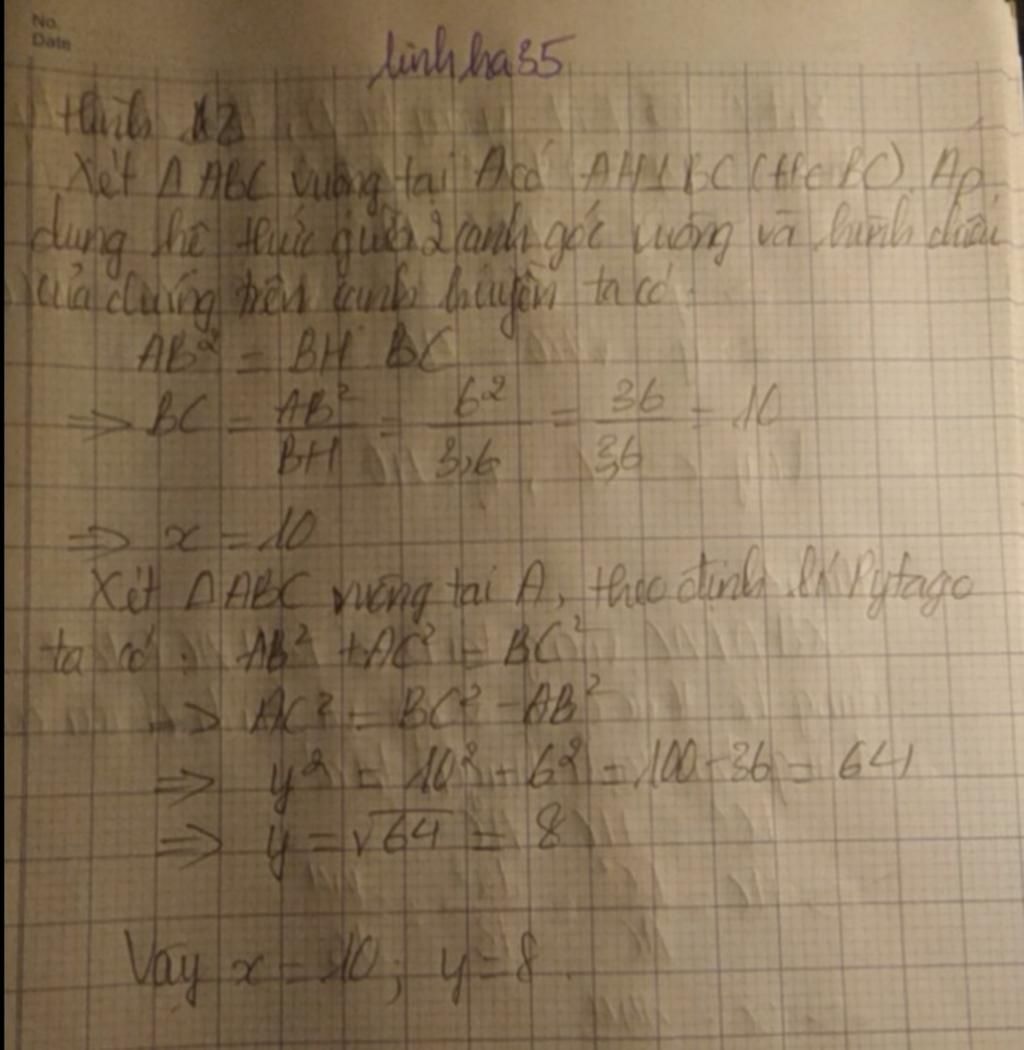 No.
Date
linhha35
Hình 12
Xét Δ ABC vuông tại A có AH⊥BC (H∈BC). Áp
dụng hệ thức giữa 2 cạnh góc vuông và hình chiếu
của chúng trên cạnh huyền ta có:
AB² = BH BC
=> BC = AB²/BH = 6²/3,6 = 36/3,6 = 10
=> x = 10
Xét ΔABC vuông tại A, theo định lí Pytago
ta có: AB² + AC² = BC²
=> AC² = BC² - AB²
=> y² = 10² - 6² = 100 - 36 = 64
=> y = √64 = 8
Vậy x = 10; y = 8.